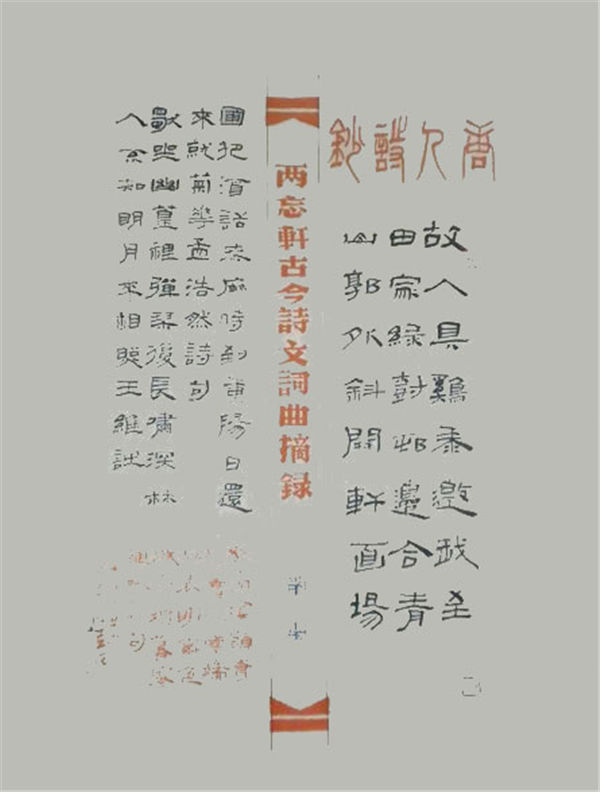 唐人詩鈔
故人具雞黍邀我至
田家綠尌邨邊合青
山郭外斜開軒面場
两忘軒古今詩文詞曲摘録
圃把酒話桑麻待到重陽日還
來就菊華孟浩然詩句
獨坐幽篁裡彈琴復長嘯深林
人不知明月來相照王維詩